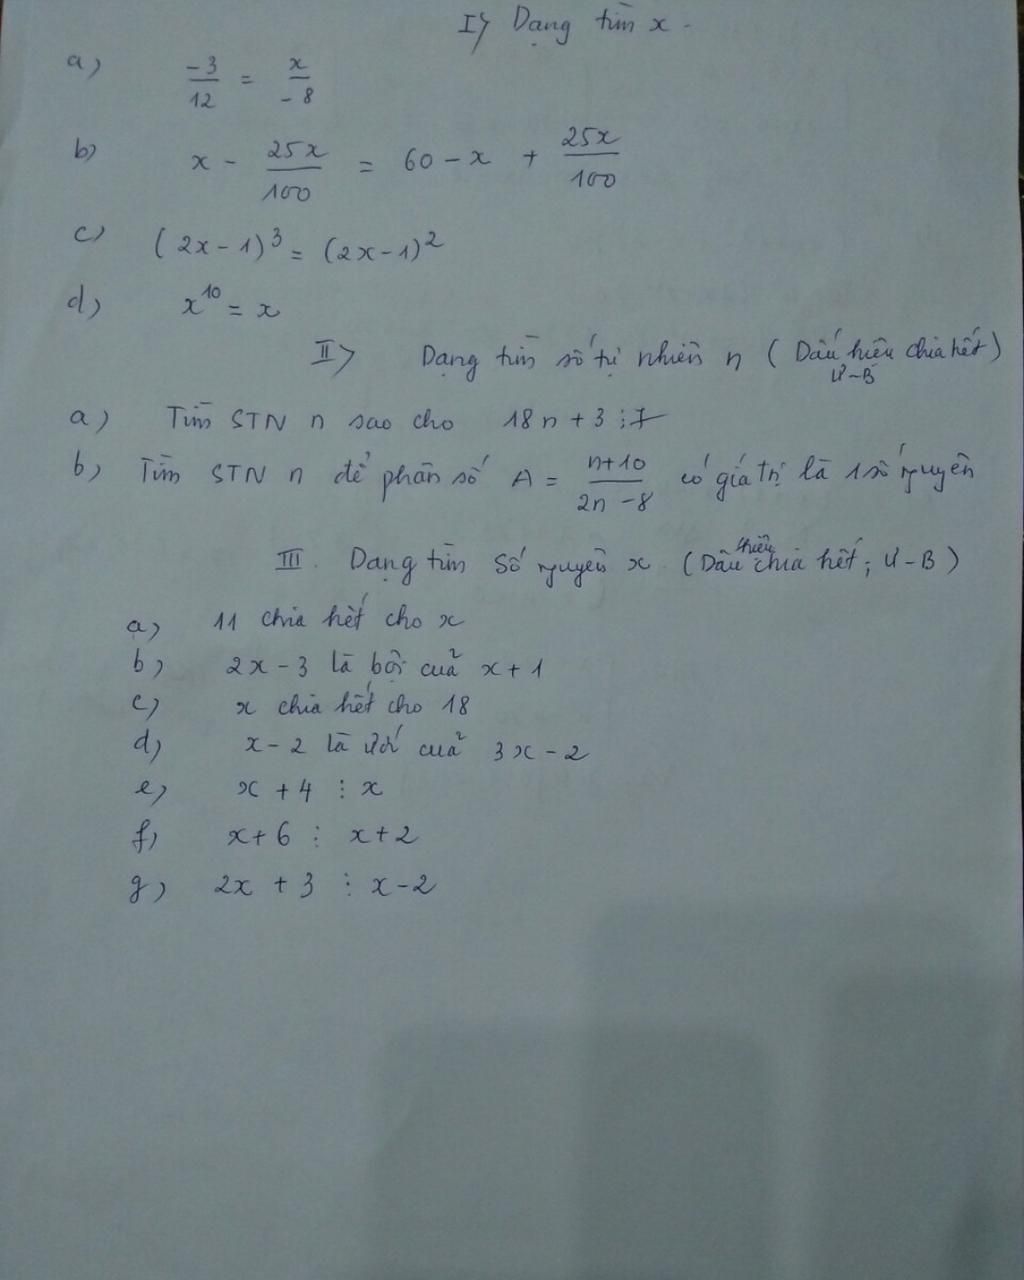 I> Dạng tìm x.
a) -3/12 = x/-8
b) x - 25x/100 = 60 - x + 25x/100
c) (2x-1)³ = (2x-1)²
d) x¹⁰ = x
II> Dạng tìm số tự nhiên n (Dấu hiệu chia hết)
Ư-B
a) Tìm STN n sao cho 18n + 3 ⋮ 7
b) Tìm STN n để phân số A = n+10/2n-8 có giá trị là 1 số nguyên
III. Dạng tìm số nguyên x (Dấu hiệu chia hết; Ư-B)
a) 11 chia hết cho x
b) 2x - 3 là bội của x + 1
c) x chia hết cho 18
d) x - 2 là ước của 3x - 2
e) x + 4 ⋮ x
f) x + 6 ⋮ x + 2
g) 2x + 3 ⋮ x - 2